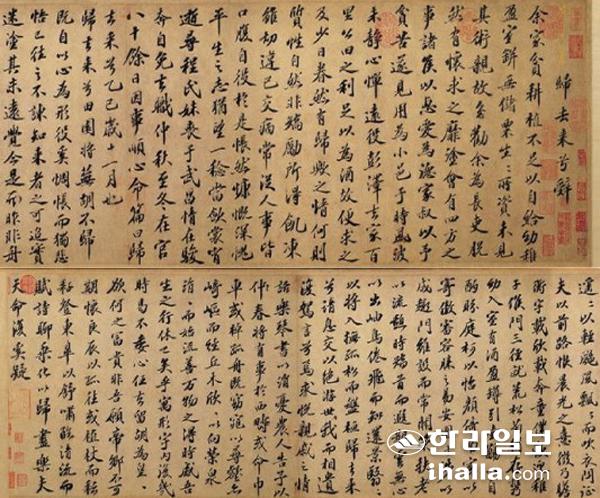 歸去來兮辭
余家貧耕植不足以自給幼稚
盈室缾無儲粟生生所資未見
其術親故多勸余為長吏脫
然有懷求之靡塗會有四方之
事諸侯以惠愛為德家叔以予
貧苦遂見用為小邑于時風波
未靜心憚遠役彭澤去家百
里公田之利足以為酒故便求之
及少日眷然有歸歟之情何則
質性自然非矯勵所得飢凍
雖切違己交病嘗從人事皆
口腹自役於是悵然慷慨深愧
平生之志猶望一稔當斂裳宵
逝尋程氏妹喪于武昌情在駿
奔自免去職仲秋至冬在官
八十餘日因事順心命篇曰歸
去來兮乙巳歲十一月也
歸去來兮田園將蕪胡不歸
既自以心為形役奚惆悵而獨悲
悟已往之不諫知來者之可追實
迷塗其未遠覺今是而昨非舟
遙遙以輕颺風飄飄而吹衣問征
夫以前路恨晨光之熹微乃瞻
衡宇載欣載奔童僕
子候門三徑就荒松菊
幼入室有酒盈罇引
眄庭柯以怡顏
寄傲審容膝之易安
成趣門雖設而常關
以流憩時矯首而遐
以出岫鳥倦飛而知還景翳翳
以將入撫孤松而盤桓歸去來
兮請息交以絕遊世與我而相遺
復駕言兮焉求悅親戚之情
話樂琴書以消憂農人告予以
仲春將有事于西疇或命巾
車或棹孤舟既窈窕以尋壑亦
崎嶇而經丘木欣欣以向榮泉
涓涓而始流善萬物之得時感吾
生之行休已矣乎寓形宇內復幾
時曷不委心任去留胡為皇皇
欲何之富貴非吾願帝鄉不可
期懷良辰以孤往或植杖而耘
耔登東皋以舒嘯臨清流而
賦詩聊乘化以歸盡樂夫
天命復奚疑
한라일보
ihalla.com